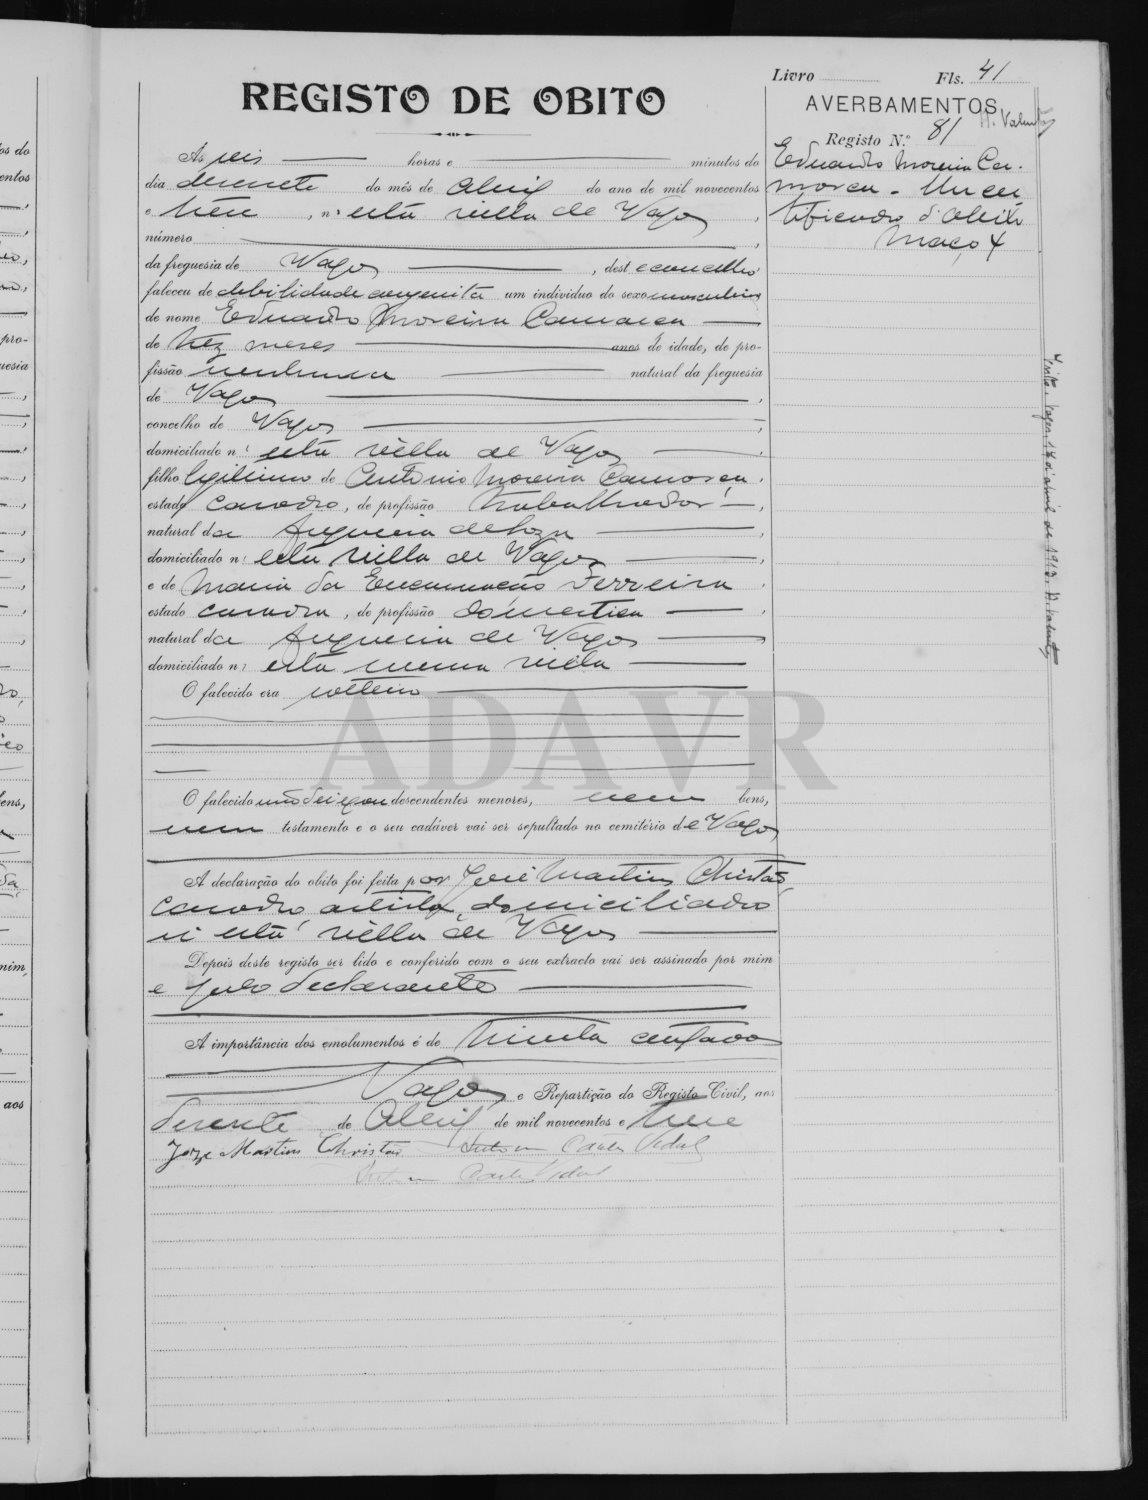 Livro Fls. 41
REGISTO DE OBITO
AVERBAMENTOS
Registo N.º 81
Às seis horas e minutos do
dia desesete do mês de Abril do ano de mil novecentos
e treze, n'esta villa de Vagos,
número,
da freguesia de Vagos, deste concelho
faleceu de debilidade congenita um individuo do sexo masculino
de nome Eduardo Moreira Camarca
de trez meses anos de idade, de pro-
fissão nenhuma natural da freguesia
de Vagos,
concelho de Vagos,
domiciliado n'esta villa de Vagos,
filho legitimo de Antonio Moreira Camarca,
estado casado, de profissão trabalhador,
natural da freguesia de Soza
domiciliado n'esta villa de Vagos,
e de Maria da Encarnação Ferreira,
estado casada, de profissão domestica,
natural da freguesia de Vagos
domiciliado n'esta mesma villa
O falecido era solteiro
O falecido não deixou descendentes menores, nem bens,
nem testamento e o seu cadáver vai ser sepultado no cemitério de Vagos
A declaração do obito foi feita por José Martins Christão,
casado, artista, domiciliado
n'esta villa de Vagos
Depois deste registo ser lido e conferido com o seu extracto vai ser assinado por mim
e pelo declarante
A importância dos emolumentos é de trinta centavos
Vagos e Repartição do Registo Civil, aos
desesete de Abril de mil novecentos e treze
Joze Martins Christão
Eduardo Moreira Ca-
marca - Um cer-
tificado d'obito
Maço 4
ADAVR